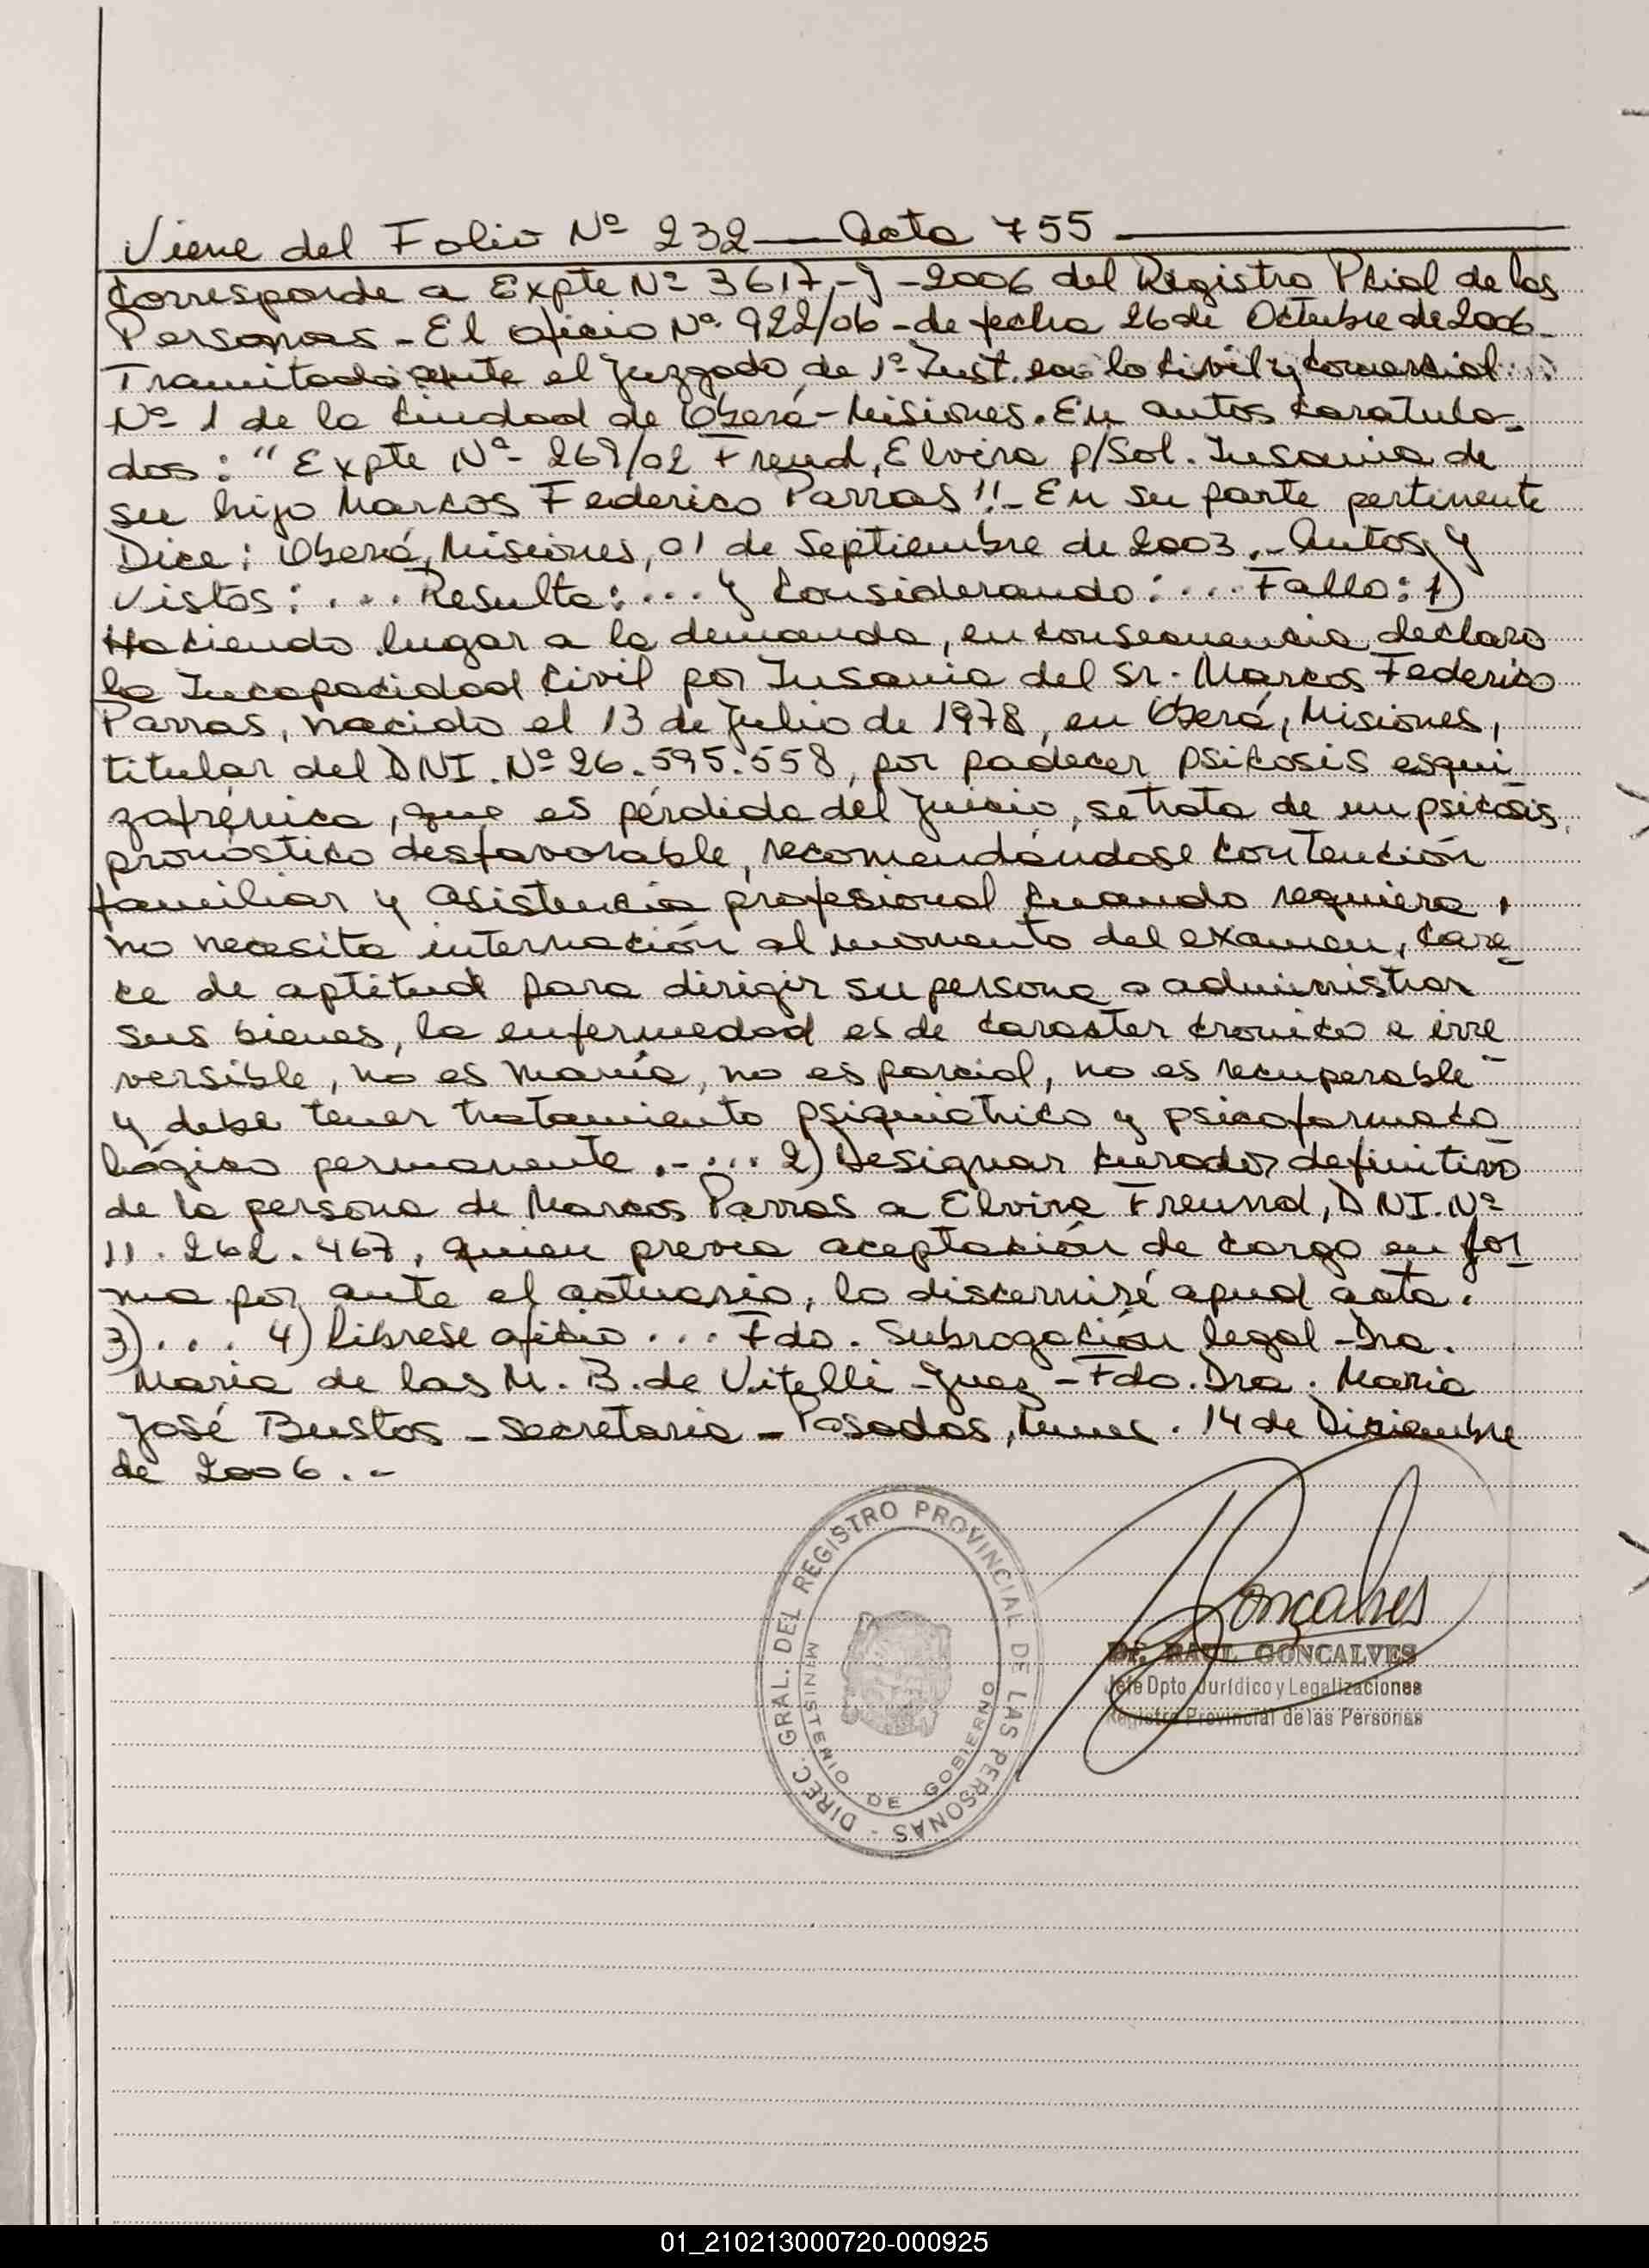 Viene del Folio Nº 232 — Acta 755 —
Corresponde a Expte Nº 3617-J-2006 del Registro Pcial de las
Personas - El oficio Nº 922/06 - de fecha 26 de Octubre de 2006 -
Tramitado ante el Juzgado de 1º Inst. en lo Civil y Comercial
Nº 1 de la Ciudad de Oberá - Misiones. En autos caratula-
dos: "Expte Nº 269/02 Freud, Elvira p/Sol. Insania de
su hijo Marcos Federico Parras". - En su parte pertinente
Dice: Oberá, Misiones, 01 de Septiembre de 2003. - Autos y
Vistos: .... Resulta: ... y Considerando: ... Fallo: 1)
Haciendo lugar a la demanda, en consecuencia declaro
la Incapacidad Civil por Insania del Sr. Marcos Federico
Parras, nacido el 13 de Julio de 1978, en Oberá, Misiones,
titular del DNI. Nº 26.595.558, por padecer psicosis esqui
zofrénica, que es pérdida del juicio, se trata de un psicosis,
pronóstico desfavorable, recomendándose contención
familiar y asistencia profesional cuando requiera,
no necesita internación al momento del examen, care
ce de aptitud para dirigir su persona o administrar
sus bienes, la enfermedad es de caracter cronico e irre
versible, no es manía, no es parcial, no es recuperable
y debe tener tratamiento psiquiátrico y psicofarmaco
lógico permanente. - ... 2) Designar curador definitivo
de la persona de Marcos Parras a Elvira Freund, DNI. Nº
11.262.467, quien previa aceptación de cargo en for
ma por ante el actuario, lo discerniré apud acta.
3) ... 4) Librese oficio ... Fdo. Subrogación legal - Dra.
Maria de las M. B. de Vitelli - Juez - Fdo. Dra. Maria
José Bustos - Secretaria - Posadas, Mnes. 14 de Diciembre
de 2006. -
DIREC. GRAL. DEL REGISTRO PROVINCIAL DE LAS PERSONAS -
MINISTERIO DE GOBIERNO
Goncalves
Dr. RAUL GONCALVES
Jefe Dpto Jurídico y Legalizaciones
Registro Provincial de las Personas
01_210213000720-000925